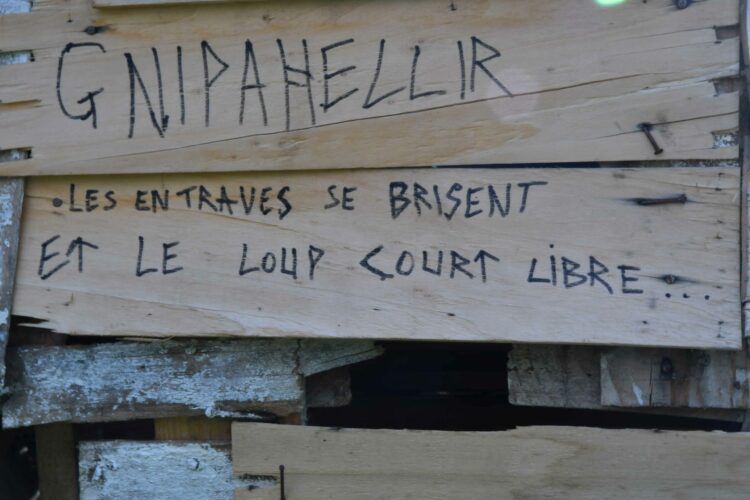 GNIPAHELLIR
•LES ENTRAVES SE BRISENT
ET LE LOUP COURT LIBRE...